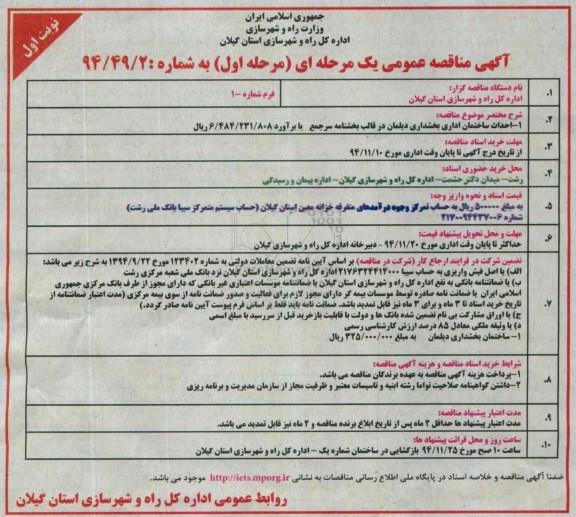 نوبت اول
جمهوری اسلامی ایران
وزارت راه و شهرسازی
اداره کل راه و شهرسازی استان گیلان
آگهی مناقصه عمومی یک مرحله ای (مرحله اول) به شماره :۹۴/۴۹/۲
۱. نام دستگاه مناقصه گزار:
اداره کل راه و شهرسازی استان گیلان
فرم شماره -۱
۲. شرح مختصر موضوع مناقصه:
۱-احداث ساختمان اداری بخشداری دیلمان در قالب بخشنامه سرجمع با برآورد ۶/۴۸۴/۲۳۱/۸۰۸ ریال
۳. مهلت خرید اسناد مناقصه:
از تاریخ درج آگهی تا پایان وقت اداری مورخ ۹۴/۱۱/۱۰
۴. محل خرید حضوری اسناد:
رشت- میدان دکتر حشمت- اداره کل راه و شهرسازی گیلان- اداره پیمان و رسیدگی
۵. قیمت اسناد و نحوه واریز وجه:
به مبلغ ۵۰۰۰۰۰ ریال به حساب تمرکز وجوه درآمدهای متفرقه خزانه معین استان گیلان (حساب سیستم متمرکز سیبا بانک ملی رشت)
شماره ۲۱۷۰۰۹۴۴۳۷۰۰۶
۶. مهلت و محل تحویل پیشنهاد قیمت:
حداکثر تا پایان وقت اداری مورخ ۹۴/۱۱/۲۰ - دبیرخانه اداره کل راه و شهرسازی گیلان
۷. تضمین شرکت در فرایند ارجاع کار (شرکت در مناقصه) بر اساس آیین نامه تضمین معاملات دولتی به شماره ۱۲۳۴۰۲ مورخ ۱۳۹۴/۹/۲۲ به شرح زیر می باشد:
الف) یا اصل فیش واریزی به حساب سیبا ۲۱۷۶۳۲۴۴۱۴۰۰۰ اداره کل راه و شهرسازی استان گیلان نزد بانک ملی شعبه مرکزی رشت
ب) یا ضمانتنامه بانکی به نفع اداره کل راه و شهرسازی استان گیلان یا ضمانتنامه موسسات اعتباری غیر بانکی که دارای مجوز از طرف بانک مرکزی جمهوری
اسلامی ایران یا ضمانت نامه صادره توسط موسسات بیمه گر دارای مجوز لازم برای فعالیت و صدور ضمانت نامه از سوی بیمه مرکزی (مدت اعتبار ضمانتنامه از
تاریخ خرید اسناد تا ۳ ماه و برای ۳ ماه نیز قابل تمدید باشد. ضمانت نامه باید فقط بر اساس فرم پیوست آیین نامه صادر گردد.)
ج) یا اوراق مشارکت بی نام تضمین شده بانک ها و دولت با قابلیت بازخرید قبل از سررسید با مبلغ اسمی
د) یا وثیقه ملکی معادل ۸۵ درصد ارزش کارشناسی رسمی
۱- ساختمان بخشداری دیلمان به مبلغ ۳۲۵/۰۰۰/۰۰۰ ریال
۸. شرایط خرید اسناد مناقصه و هزینه آگهی مناقصه:
۱-پرداخت هزینه آگهی مناقصه به عهده برندگان مناقصه می باشد.
۲-داشتن گواهینامه صلاحیت تواما رشته ابنیه و تاسیسات معتبر و ظرفیت مجاز از سازمان مدیریت و برنامه ریزی
۹. مدت اعتبار پیشنهاد مناقصه:
مدت اعتبار پیشنهاد ها حداقل ۲ ماه پس از تاریخ ابلاغ برنده مناقصه و ۲ ماه نیز قابل تمدید می باشد.
۱۰. ساعت روز و محل قرائت پیشنهاد ها:
ساعت ۱۰ صبح مورخ ۹۴/۱۱/۲۵ بازگشایی در ساختمان شماره یک - اداره کل راه و شهرسازی استان گیلان
ضمنا آگهی مناقصه و خلاصه اسناد در پایگاه ملی اطلاع رسانی مناقصات به نشانی http://iets.mporg.ir موجود می باشد.
روابط عمومی اداره کل راه و شهرسازی استان گیلان